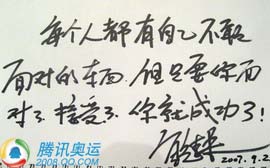 每个人都有自己不敢
面对的东西.但只要你面
对了.接受了.你就成功了!
腾讯奥运
2007.9.2